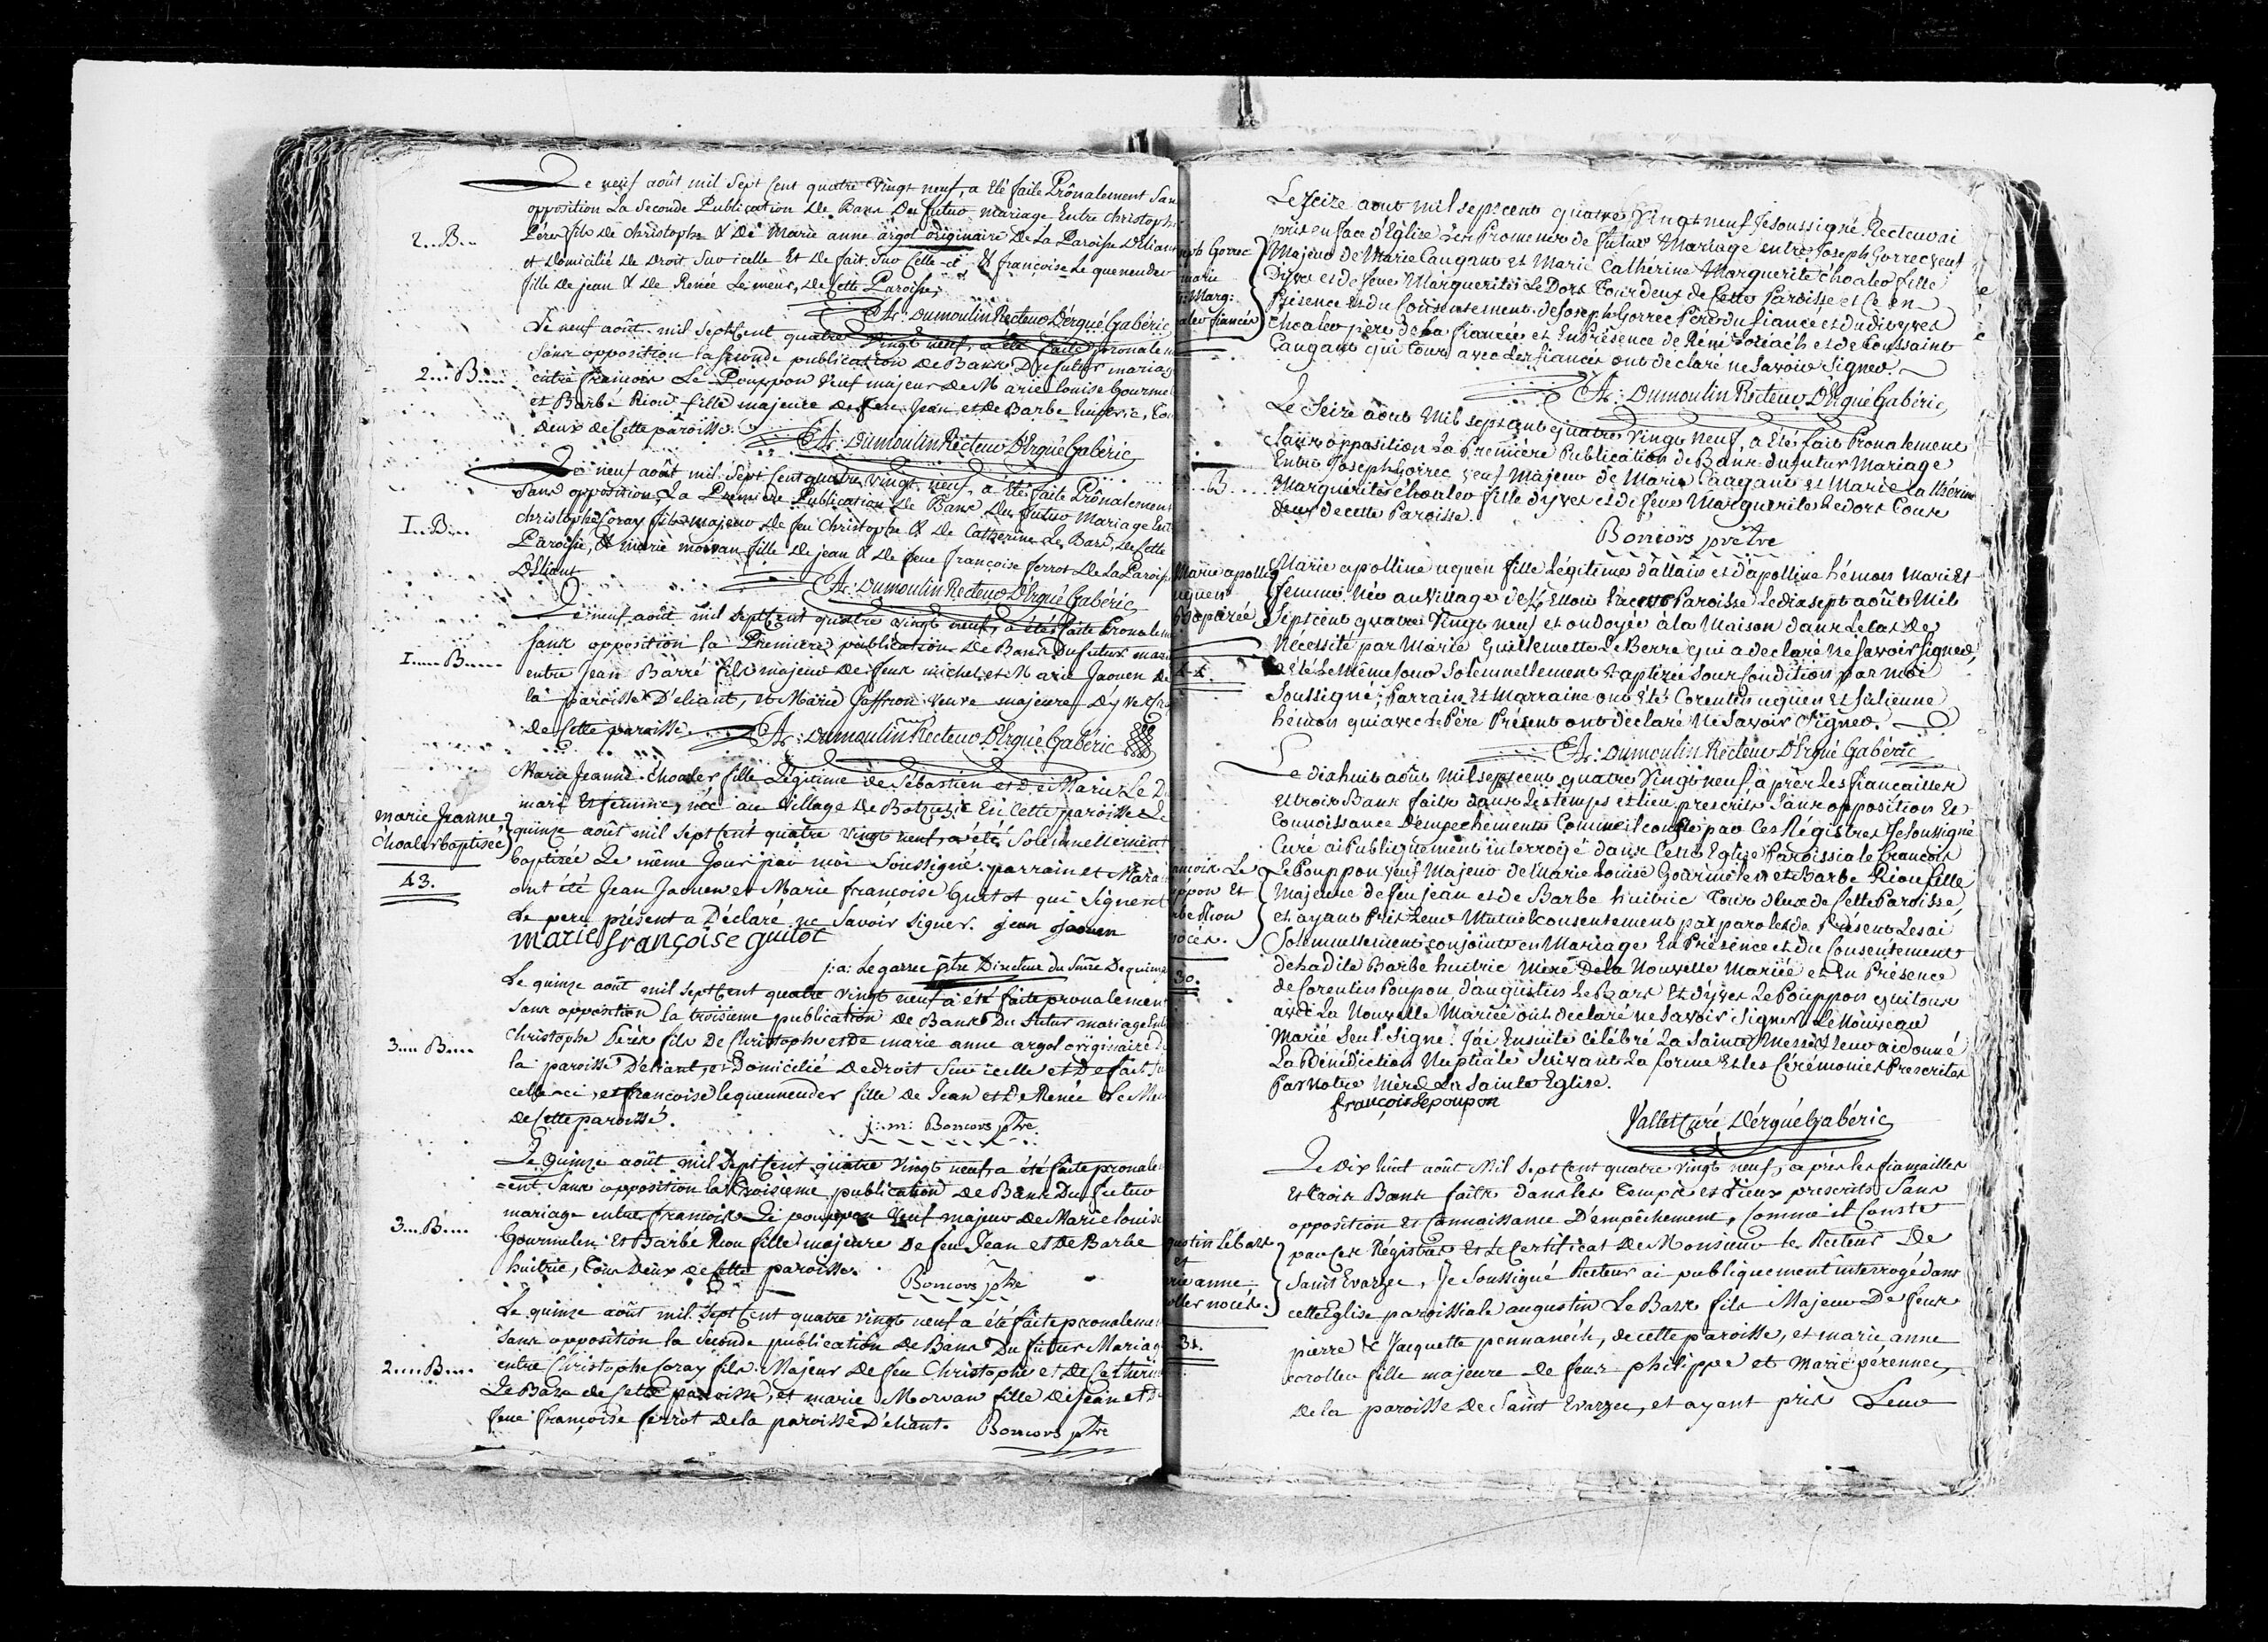 Le neuf août mil Sept Cent quatre Vingt neuf, a Eté faite Prônalement San
opposition La Seconde Publication De Bans Du futur mariage Entre christoph
2...B... Pérès fils De Christophe & De Marie anne argol originaire De La Paroisse D'Eliant
et Domicilié De Droit Sur icelle Et De fait Sur Celle-ci & françoise Le quenendeur
fille De jean & De Renée Le meur, De Cette Paroisse,
At: Dumoulin Recteur D'Ergué Gabéric
Le neuf août mil Sept Cent quatre Vingt neuf, a été faite pronalem
Sans opposition la seconde publication De Bans Du futur mariag
2...B.... entre françois Le Pouppon Veuf majeur De Marie louise Gourme
et Barbe Riou fille majeure De feu Jean et De Barbe huitric, Tou
Deux De Cette paroisse.
At: Dumoulin Recteur D'Ergué Gabéric
Le neuf août mil Sept Cent quatre Vingt neuf, a Eté faite Prônalement
Sans opposition La Premiere Publication De Bans Du futur Mariage Ent
I...B... christophe Coray fils majeur De feu Christophe & De Catherine Le Bars, De Cette
Paroisse, & marie morvan fille De jean & De feue françoise ferrot De La Parois
D'Eliant
At: Dumoulin Recteur D'Ergué Gabéric
Le neuf août mil Sept Cent quatre vingt neuf, a été faite Pronalem
Sans opposition la Premiere publication De Bans Du futur mari
I.....B..... entre Jean Barré fils majeur De feus michel et Marie Jaouen De
la paroisse D'eliant, et Marie Gaffron Veuve majeure D'yves
De Cette paroisse.
At: Dumoulin Recteur D'Ergué Gabéric
Marie Jeanne choaler fille Légitime de Sébastien et De Marie Le D
mari et femme, née au Village De En Cette paroisse Le
marie Jeanne choaler baptisée quinze août mil Sept Cent quatre vingt neuf, a été Solemnellement
baptisée Le même Jour par moi Soussigné parrain et Mara
43. ont été Jean Jaouen et Marie françoise Guitot qui Signent
Le pere présent a Déclaré ne Savoir Signer. jean jaouen
marie françoise guitot
j:a: Legarrec ptre Directeur du Smre De quimp
Le quinze août mil Sept Cent quatre vingt neuf a été faite pronalement
Sans opposition la troisieme publication De Bans Du futur mariage Entr
Christophe Pérès fils De Christophe et De marie anne argol originaire D
3.... B.... la paroisse D'eliant, et Domicilié De Droit Sur icelle et De fait Su
celle-ci, et françoise lequennender fille De Jean et De Renée Le Meu
De Cette paroisse.
j: m: Boncors ptre
Le Quinze août mil Sept Cent quatre Vingt neuf, a été faite pronale-
-ent Sans opposition la troisieme publication De Bans Du futur
mariage entre françois Le pouppon Veuf majeur De Marie louise
3....B.... Gourmelen Et Barbe Riou fille majeure De feu Jean et De Barbe
huitric, Tous Deux De Cette paroisse.
Boncors ptre
Le quinze août mil Sept Cent quatre vingt neuf a été faite pronalemen
Sans opposition la Seconde publication De Bans Du futur Mariag
2.....B.... entre Christophe Coray fils Majeur De feu Christophe et De Catherine
Le Bars de Cette paroisse, et marie Morvan fille De jean et D
feue françoise ferrot De la paroisse D'éliant.
Boncors ptre
Le Seize aout mil septcent quatre Vingt neuf Je Soussigné Recteur ai
pris en face d'Eglise Les Promesses de futur Mariage entre Joseph Gorrec veuf
Majeur de Marie Caugant et Marie Cathérine Marguerite choaler fille
D'yves et de feue Marguerite Le Dorz Tous deux de Cette Paroisse et Ce en
Présence et du Consentement de Joseph Gorrec Père du fiancé et du dit yves
choaler père de la fiancée et En Présence de Réné Loriach et de Toussaint
Caugant qui tous avec Les fiancés ont déclaré ne Savoir Signer.
At: Dumoulin Recteur D'Ergué Gabéric
Le Seize aout Mil sept cent quatre vingt neuf, a Eté fait Pronalement
Sans opposition La Première Publication de Bans du futur Mariage
Entre Joseph Gorrec veuf Majeur de Marie Caugant et Marie Cathérine
...B.... Marguerite choaler fille d'yves et de feue Marguerite Le dorz Tous
deux de cette Paroisse.
Boncors prêtre
Marie apolline uguen fille Légitime d'allain et d'apolline hémon Mari et
femme Née au Village de En notre Paroisse Le dix sept août Mil
Sept cent quatre Vingt neuf et ondoyée à la Maison dans Le Cas De
Nécessité par Marie Guillemette Le Berre qui a declaré ne Savoir Signer,
a été Le même Jour Solemnellement Baptisée Sous Condition par moi
Soussigné; Parrain et Marraine ont été Corentin uguen et Julienne
hémon qui avec Le Père Présent ont déclaré Ne Savoir Signer.
At: Dumoulin Recteur D'Ergué Gabéric
Le dix huit aout Mil septcent quatre Vingt neuf, a près Les fiancailles
et trois Bans faits dans Les temps et lieu prescrits Sans opposition Et
Connoissance D'empechements Comme il conste par Ces Régistres Je Soussigné
Curé ai Publiquement interrogé dans Cette Eglise Paroissiale françois
Le Pouppon veuf Majeur de Marie Louise Gourmelen et Barbe Riou fille
Majeure de feu jean et de Barbe huitric Tous deux de Cette Paroisse,
et ayant Pris Leur Mutuel Consentement par paroles de Présent Les ai
Solemnellement conjoints en Mariage En Présence et du Consentement
de La dite Barbe huitric Mère De la Nouvelle Mariée et En Présence
30. de Corentin Poupon d'augustin Le Bars Et d'yves Le Pouppon qui tous
avec La Nouvelle Mariée ont declaré ne Savoir Signer Le Nouveau
Marié Seul Signe. J'ai Ensuite Célébré La Sainte Messe & Leur ai donné
La Bénédiction Nuptiale Suivant La forme Et les Cérémonies Prescrites
Par Notre Mère La Sainte Eglise.
françois lepoupon
Vallet Curé D'érgué Gabéric
Le Dix huit août Mil Sept Cent quatre vingt neuf, après les fiançailles
Et Trois Bans faits dans les Temps et Lieux prescrits Sans
opposition Et Connaissance D'empêchement, Comme il Conste
par Ces Régistres Et Le Certificat De Monsieur le Recteur De
Saint Evarzec, Je Soussigné Recteur ai publiquement interrogé dans
cette Eglise paroissiale augustin Le Bars fils Majeur De feus
31. pierre & Jacquette pennanéch, de cette paroisse, et marie anne
coroller fille majeure de feus philippe et Marie pérennec,
de la paroisse De Saint Evarzec, et ayant pris Leur